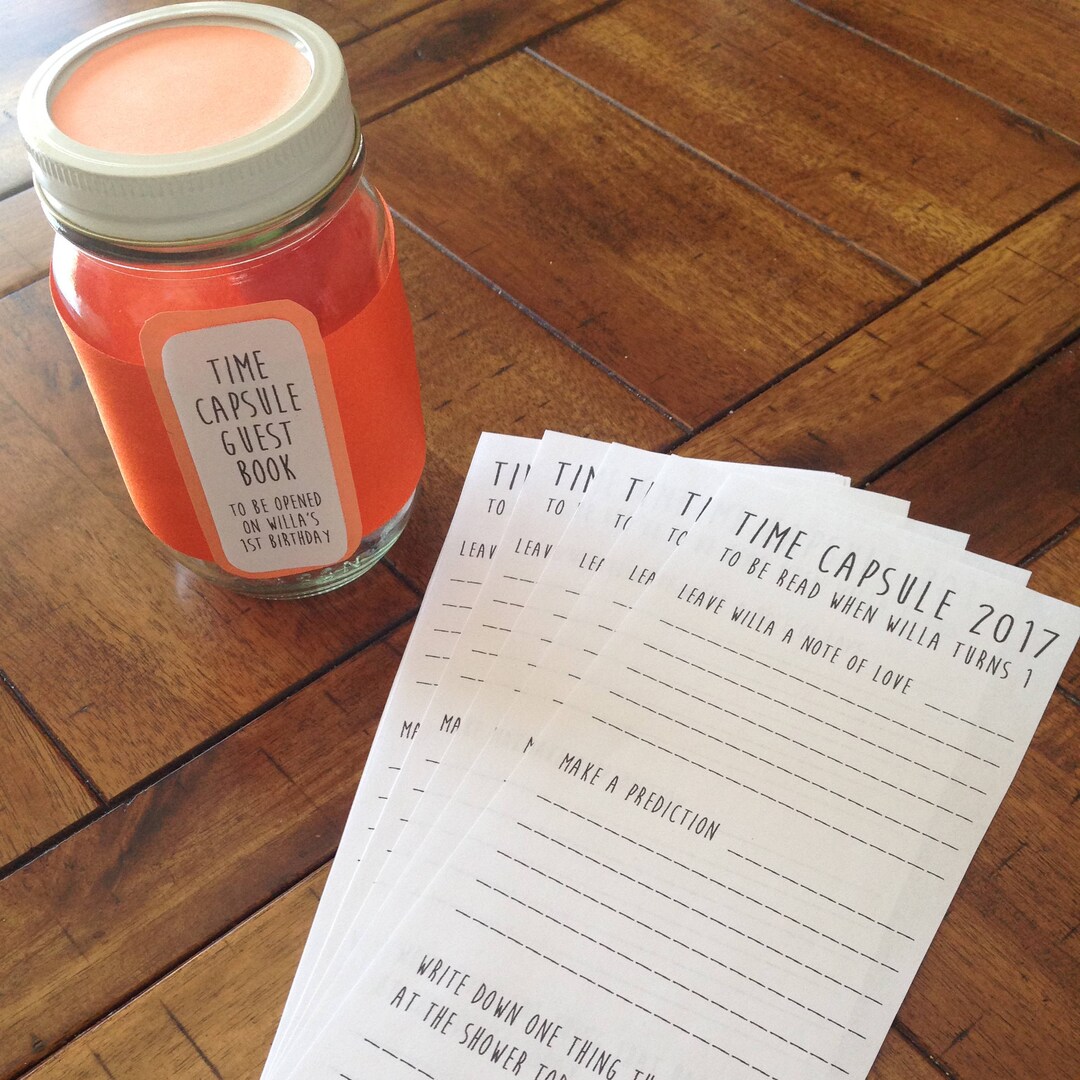 TIME
CAPSULE
GUEST
BOOK
TO BE OPENED
ON WILLA'S
1ST BIRTHDAY
TI
TO
LEAV
MA
TIN
TO
LEAV
MA
T
TO
LEA
TI
TO
LEA
TIME CAPSULE 2017
TO BE READ WHEN WILLA TURNS 1
LEAVE WILLA A NOTE OF LOVE
MAKE A PREDICTION
WRITE DOWN ONE THING TH
AT THE SHOWER TOD